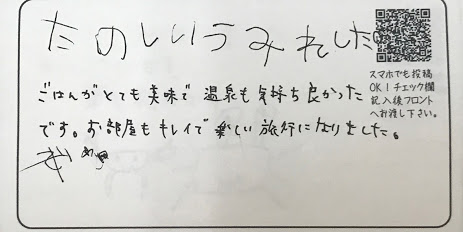 たのしいうみれした。
ごはんがとても美味で 温泉も気持ち良かった
です。お部屋もキレイで楽しい旅行になりました。
スマホでも投稿
OK！チェック欄
記入後フロント
へお渡し下さい。